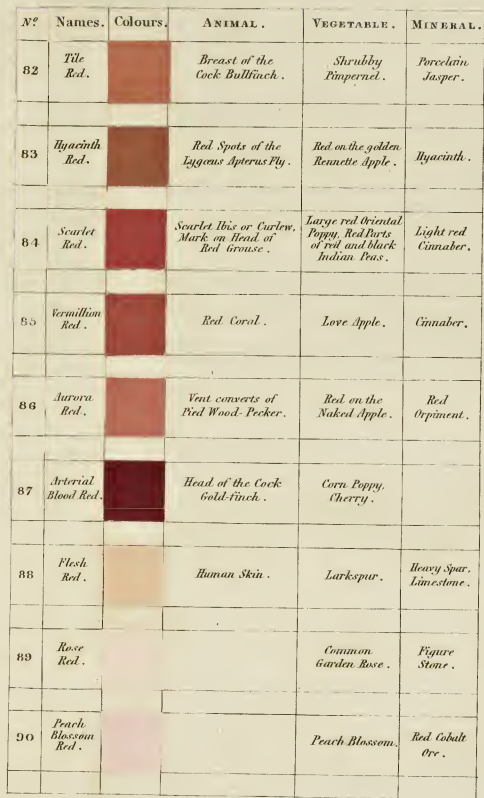 Nº Names. Colours. ANIMAL. VEGETABLE. MINERAL.
82
Tile
Red.
Breast of the
Cock Bullfinch.
Shrubby
Pimpernel.
Porcelain
Jasper.
83
Hyacinth
Red.
Red Spots of the
Lygœus Apterus Fly.
Red on the golden
Rennette Apple.
Hyacinth.
84
Scarlet
Red.
Scarlet Ibis or Curlew,
Mark on Head of
Red Grouse.
Large red Oriental
Poppy, Red Parts
of red and black
Indian Peas.
Light red
Cinnaber.
85
Vermillion
Red.
Red Coral.
Love Apple.
Cinnaber.
86
Aurora
Red.
Vent converts of
Pied Wood-Pecker.
Red on the
Naked Apple.
Red
Orpiment.
87
Arterial
Blood Red.
Head of the Cock
Gold-finch.
Corn Poppy,
Cherry.
88
Flesh
Red.
Human Skin.
Larkspur.
Heavy Spar.
Limestone.
89
Rose
Red.
Common
Garden Rose.
Figure
Stone.
90
Peach
Blossom
Red.
Peach Blossom.
Red Cobalt
Ore.